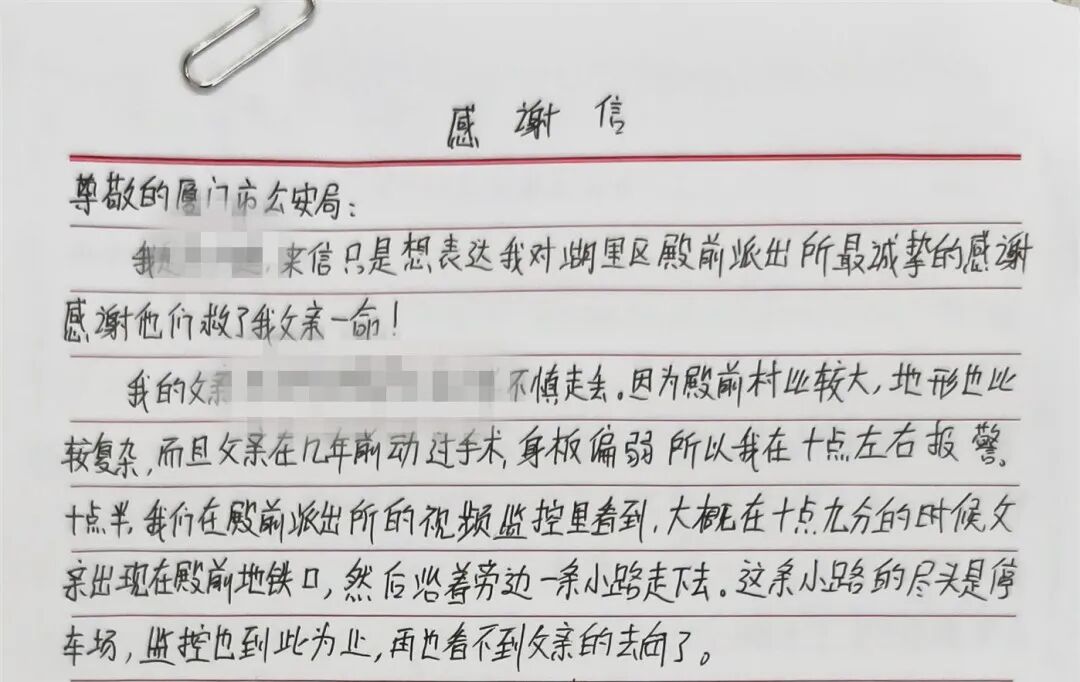 感谢信
尊敬的厦门市公安局：
我是，来信只是想表达我对湖里区殿前派出所最诚挚的感谢
感谢他们救了我父亲一命！
我的父亲不慎走丢。因为殿前村比较大，地形也比
较复杂，而且父亲在几年前动过手术，身板偏弱所以我在十点左右报警。
十点半，我们在殿前派出所的视频监控里看到，大概在十点九分的时候父
亲出现在殿前地铁口，然后沿着旁边一条小路走下去。这条小路的尽头是停
车场，监控也到此为止，再也看不到父亲的去向了。